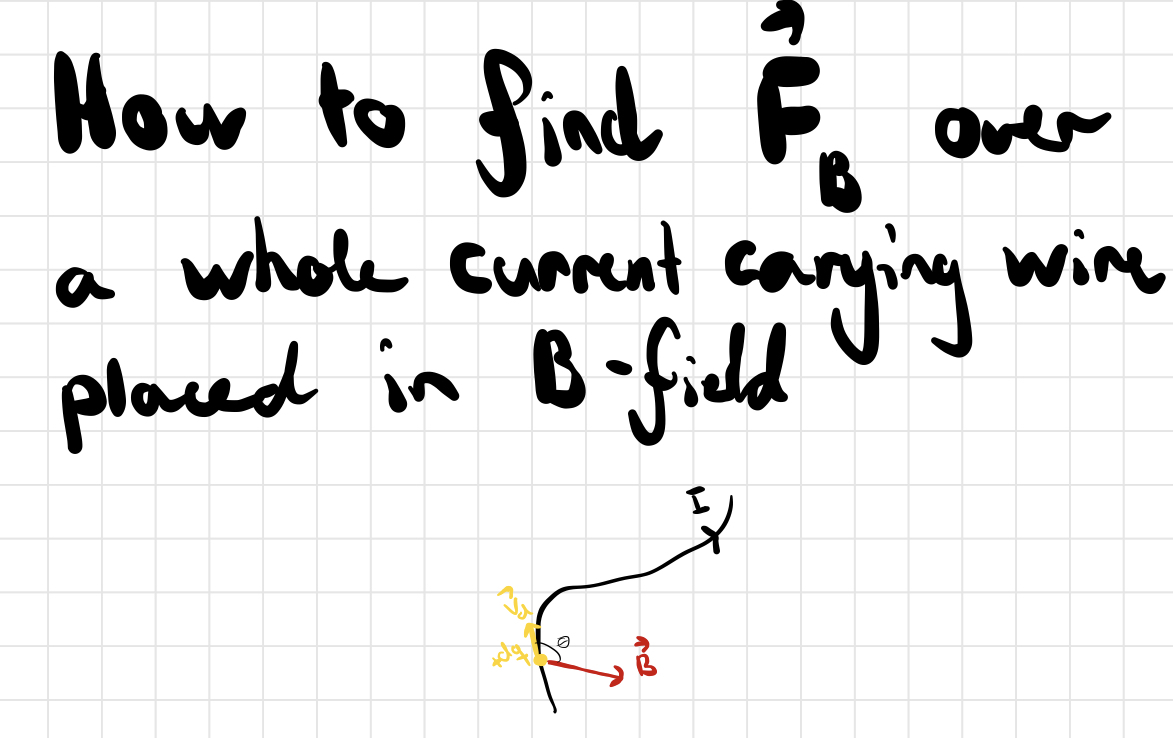 How to find F⃗_B over
a whole current carrying wire
placed in B-field
I
v⃗d
θ
+dq
B⃗